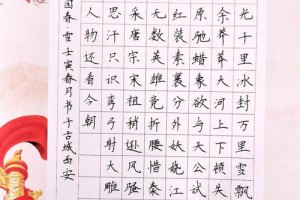 光千里冰封万里雪飘
余莽莽大河上下顿失
原驰蜡象欲与天公试
红装素裹分外妖娆江
无数英雄竞折腰惜秦
采唐宗宋祖稍逊风骚
思汗只识弯弓射大雕
人物还看今朝
园春雪壬寅春月书于古城西安